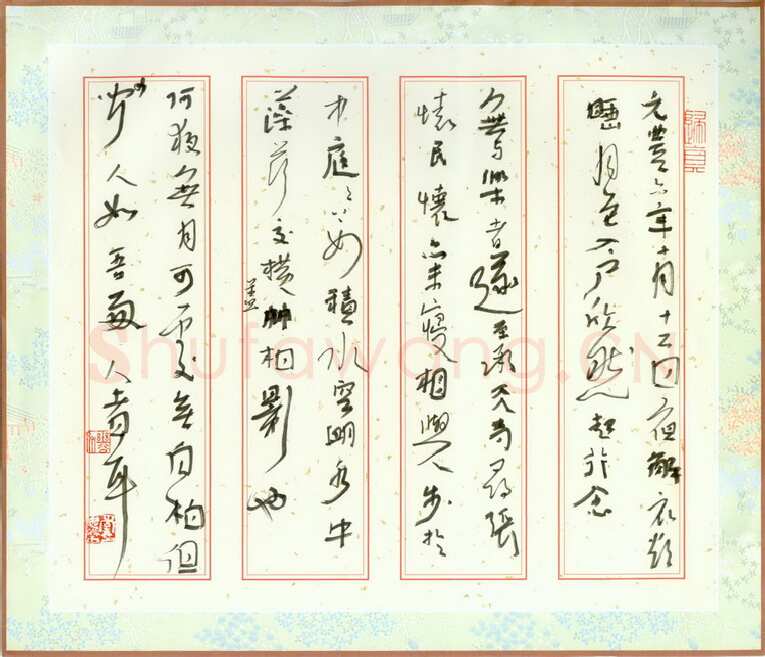 元豐六年十月十二日夜解衣欲
睡月色入戶欣然起行念
無与樂者遂至承天寺尋張
懷民懷亦未寢相與步於
中庭〻下如積水空明水中
藻荇交橫蓋竹柏影也
何夜無月何處無竹柏但
少閒人如吾兩人者耳
Shufawang.CN